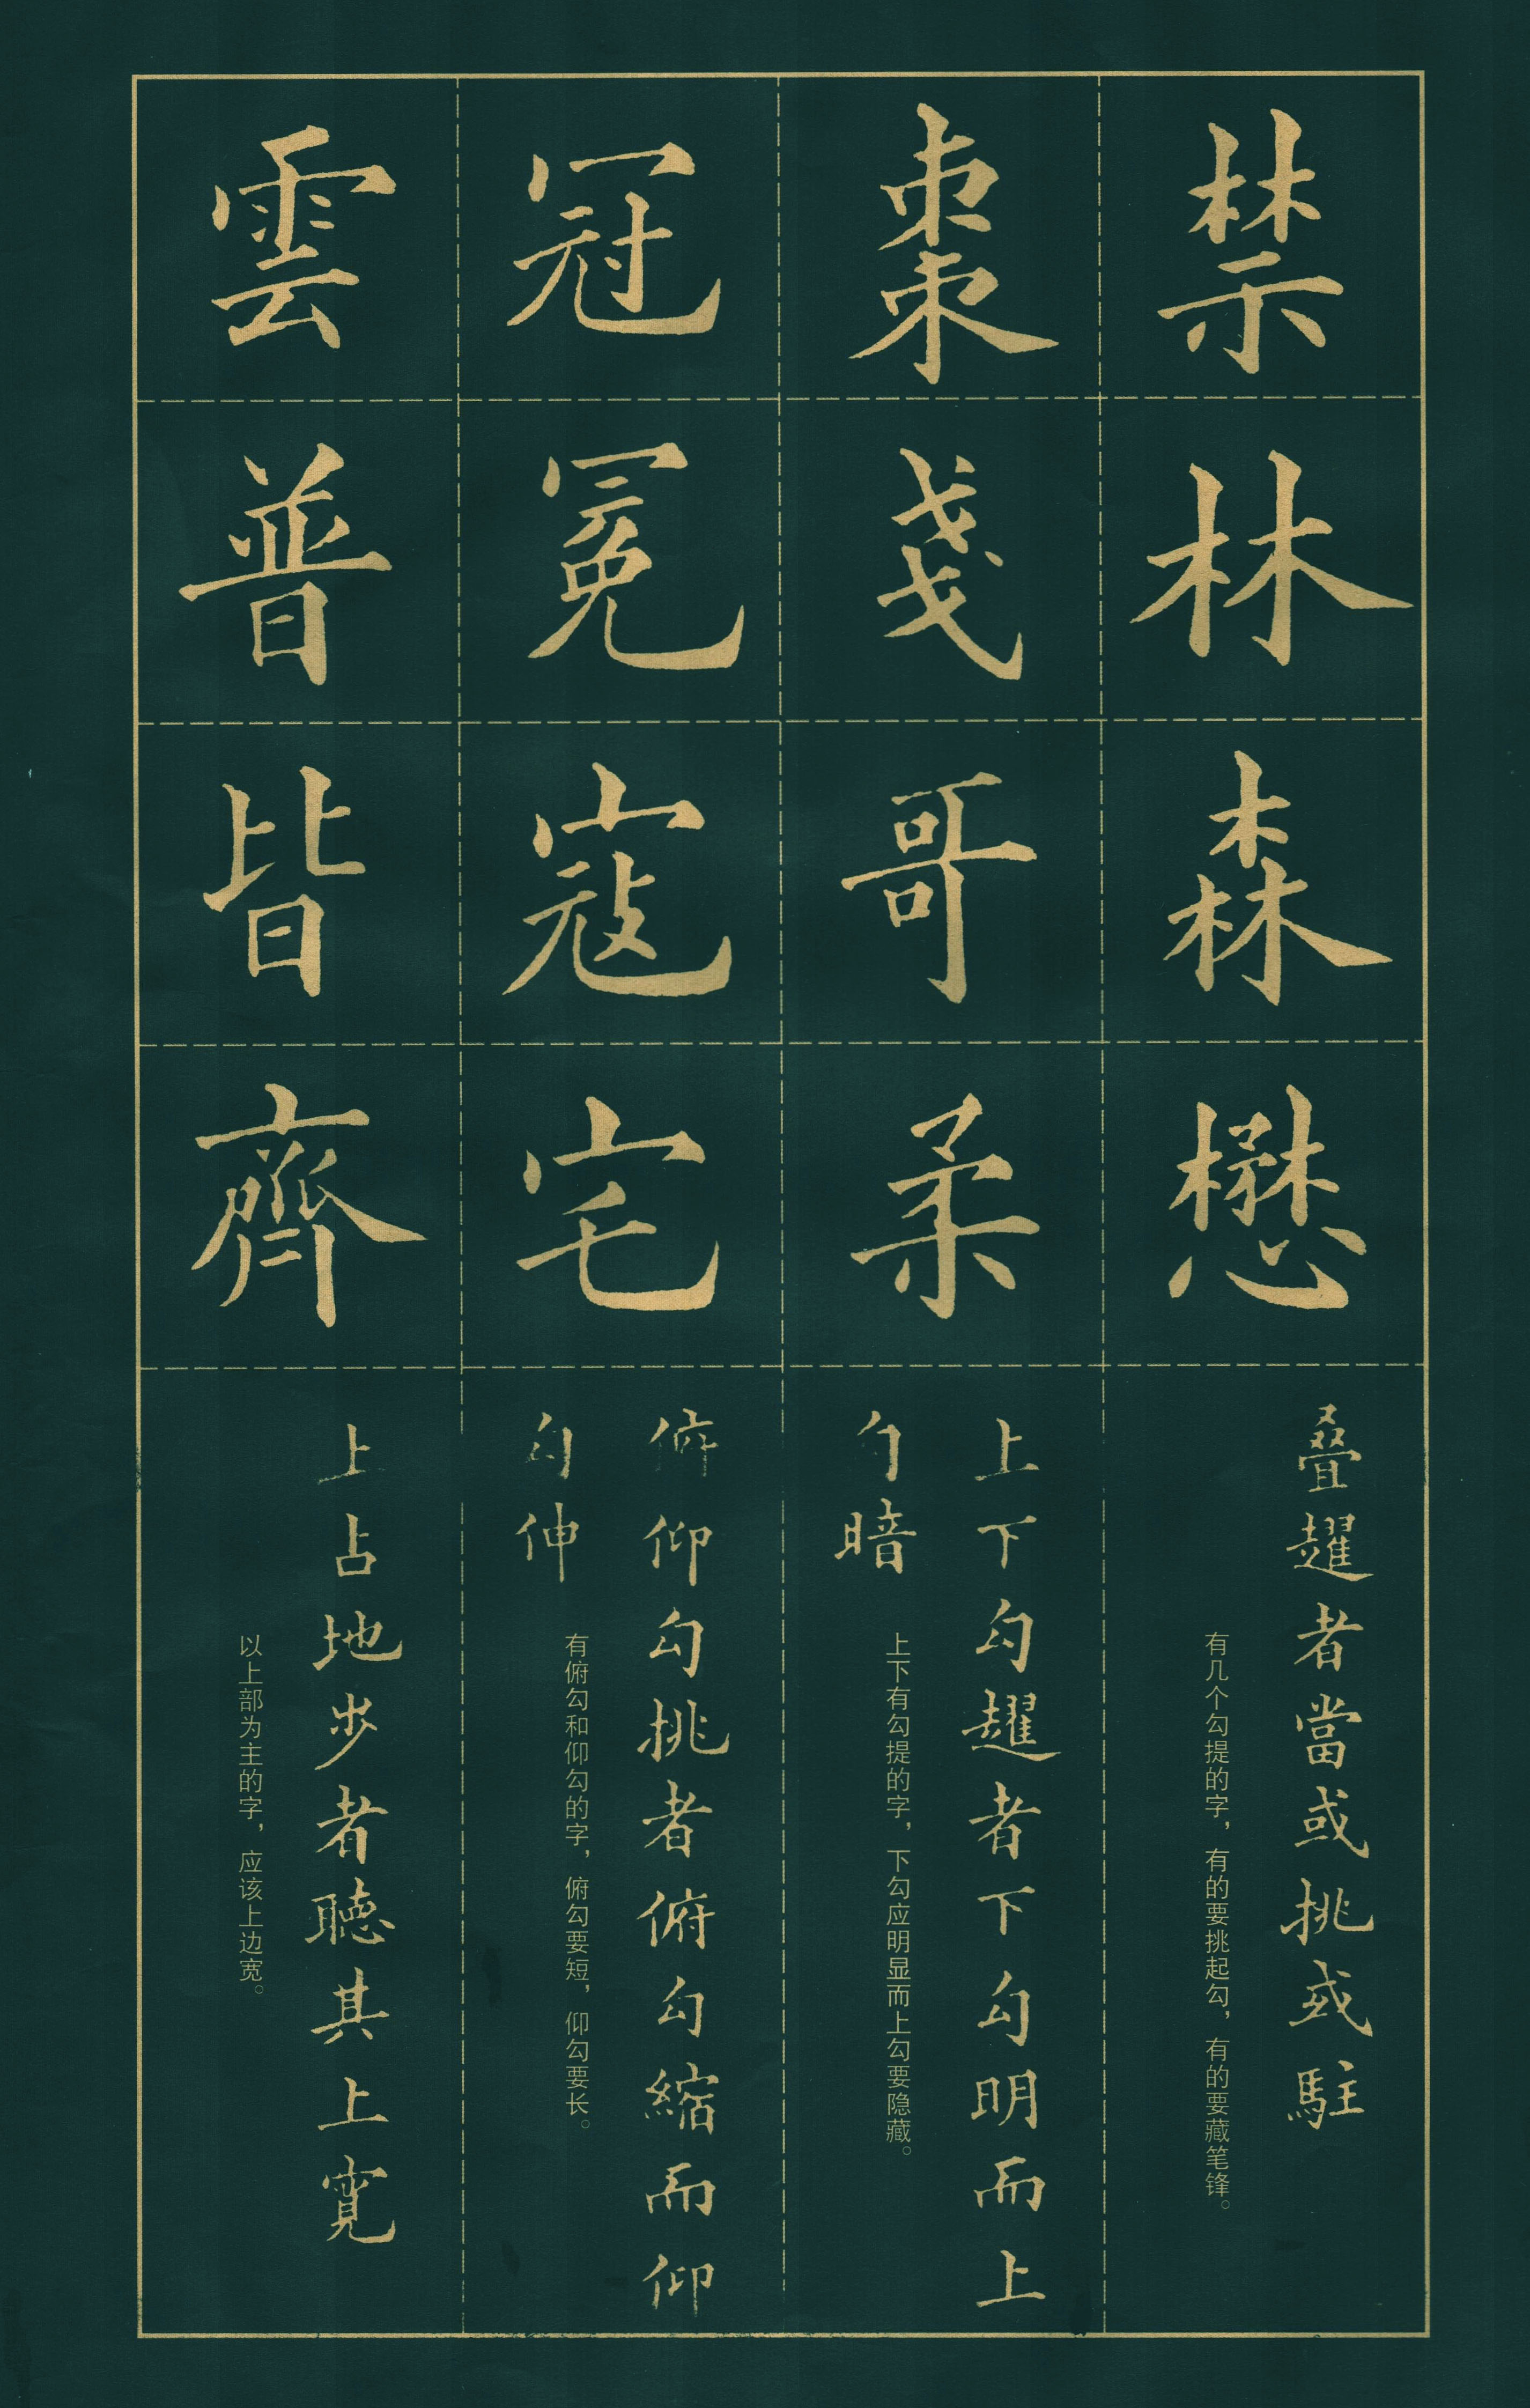 禁
林
森
懋
叠趯者當或挑或駐
有几个勾提的字，有的要挑起勾，有的要藏笔锋。
棗
戔
哥
柔
上下勾趯者下勾明而上
勾暗
上下有勾提的字，下勾应明显而上勾要隐藏。
冠
冕
寇
宅
俯仰勾挑者俯勾縮而仰
勾伸
有俯勾和仰勾的字，俯勾要短，仰勾要长。
雲
普
皆
齊
上占地步者聽其上寬
以上部为主的字，应该上边宽。